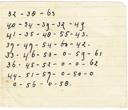 32 - 38 - 63
40 - 34 - 39 - 32 - 43
41 - 35 - 48 - 55 - 43.
37 - 49 - 54 - 60 - 42.
33 - 46 - 53 - 0 - 59 - 61
36 - 45 - 52 - 0 - 0 - 62
44 - 51 - 57 - 0 - 50 - 0
0 - 56 - 0 - 58.